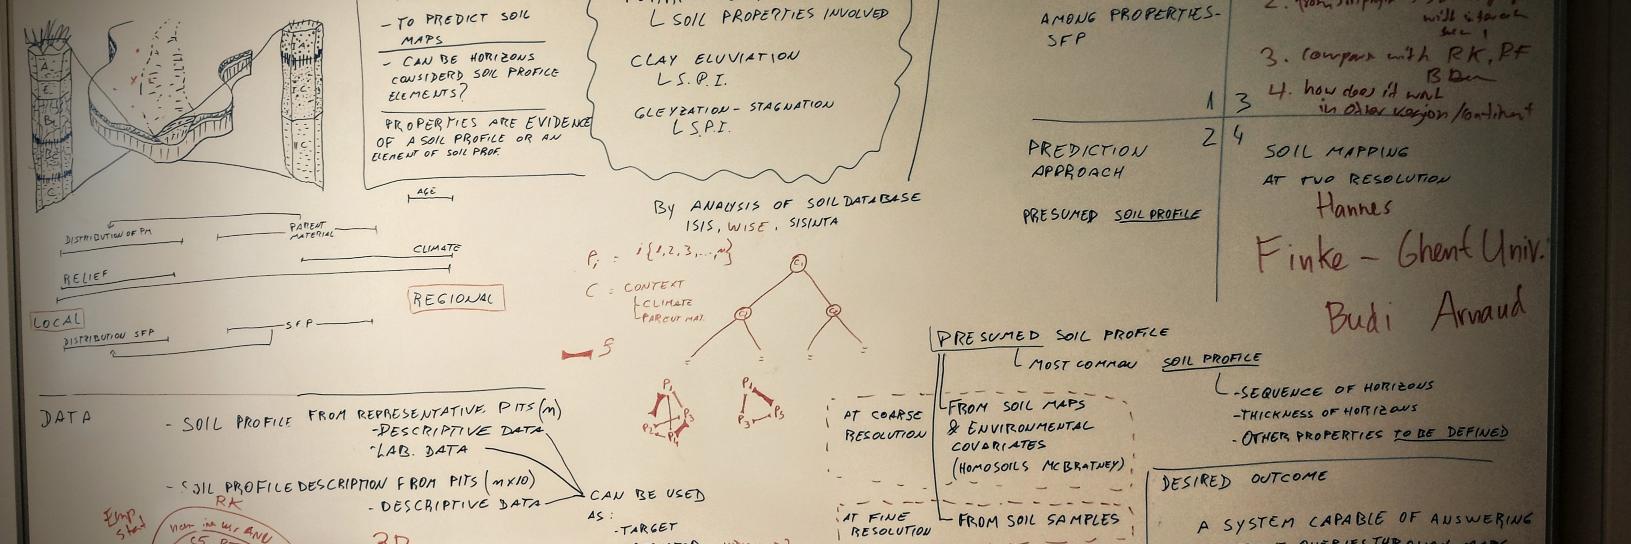 - TO PREDICT SOIL
MAPS
- CAN BE HORIZONS
CONSIDERD SOIL PROFILE
ELEMENTS?
PROPERTIES ARE EVIDENCE
OF A SOIL PROFILE OR AN
ELEMENT OF SOIL PROF.
L SOIL PROPERTIES INVOLVED
CLAY ELUVIATION
L S.P.I.
GLEYZATION - STAGNATION
L S.P.I.
AMONG PROPERTIES-
SFP
3. compare with RK, RF
4. how does it work
in other
1 3
2 4
PREDICTION
APPROACH
PRESUMED SOIL PROFILE
SOIL MAPPING
AT TWO RESOLUTION
Hannes
Finke - Ghent Univ.
Budi Arnaud
AGE
DISTRIBUTION OF PM
PARENT
MATERIAL
CLIMATE
RELIEF
REGIONAL
LOCAL
DISTRIBUTION SFP
SFP
BY ANALYSIS OF SOIL DATABASE
ISIS, WISE, SISINTA
Pi = i{1,2,3,...,n}
C = CONTEXT
CLIMATE
PARENT MAT.
C1
P1
P3
P1
P3
DATA
- SOIL PROFILE FROM REPRESENTATIVE PITS (n)
- DESCRIPTIVE DATA
- LAB. DATA
- SOIL PROFILE DESCRIPTION FROM PITS (nx10)
- DESCRIPTIVE DATA
CAN BE USED
AS:
- TARGET
RK
3D
PRESUMED SOIL PROFILE
L MOST COMMON SOIL PROFILE
- SEQUENCE OF HORIZONS
- THICKNESS OF HORIZONS
- OTHER PROPERTIES TO BE DEFINED
AT COARSE
RESOLUTION
FROM SOIL MAPS
& ENVIRONMENTAL
COVARIATES
(HOMOSOILS MCBRATNEY)
AT FINE
RESOLUTION
FROM SOIL SAMPLES
DESIRED OUTCOME
A SYSTEM CAPABLE OF ANSWERING